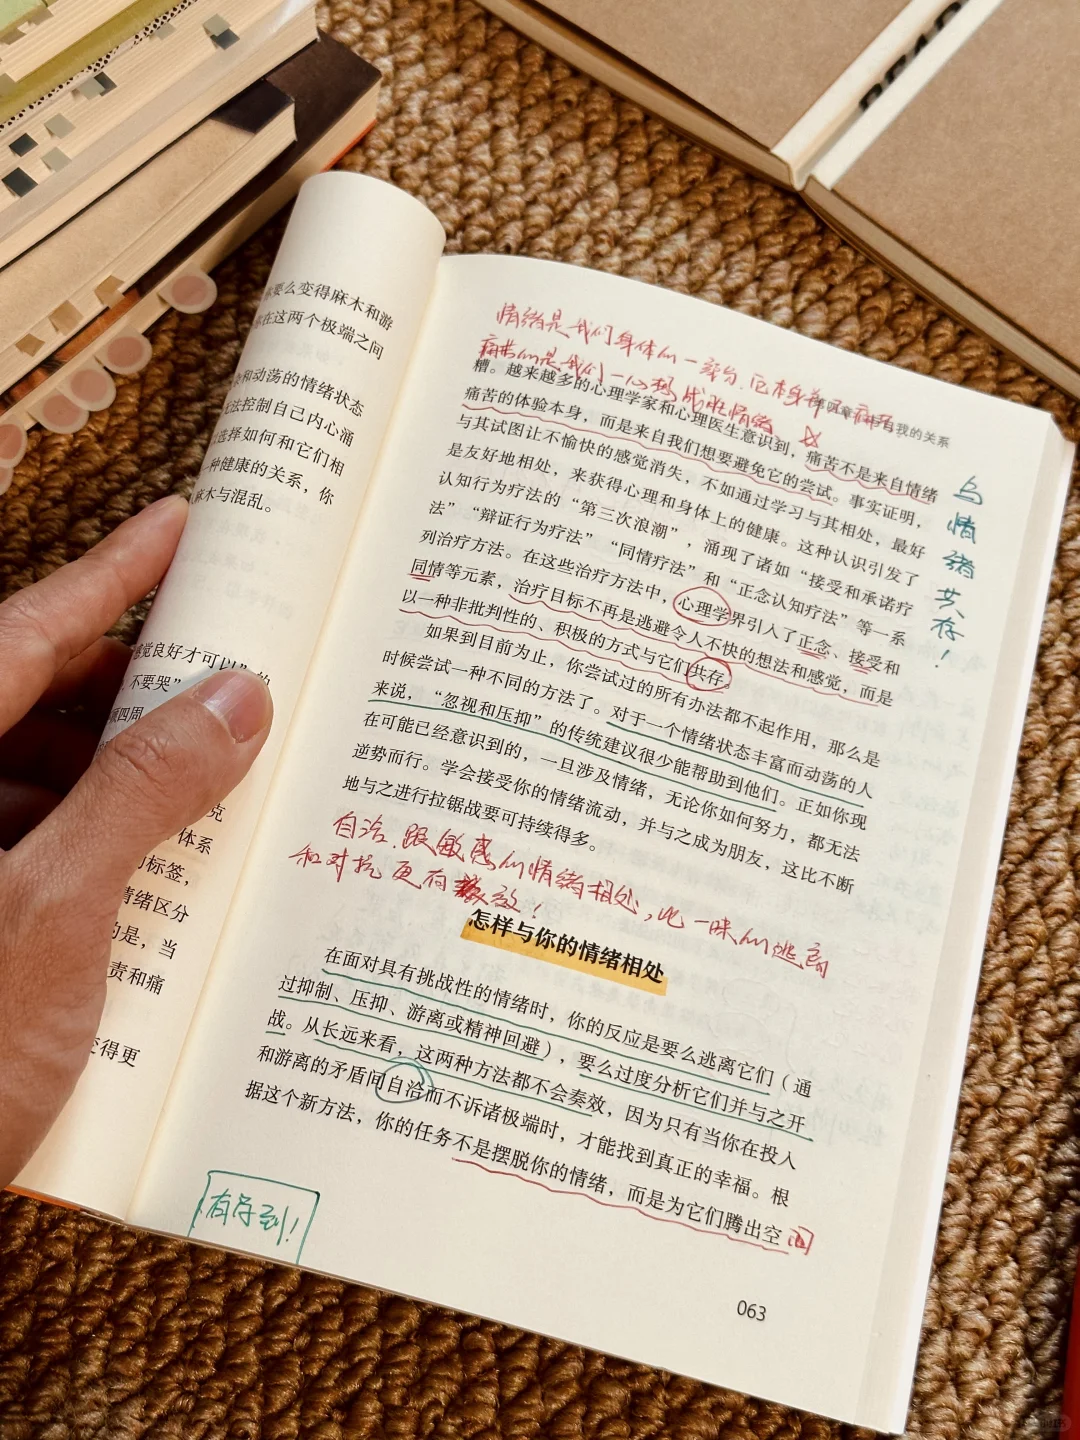 要么变得麻木和游
在这两个极端之间
和动荡的情绪状态
无法控制自己内心涌
选择如何和它们相
一种健康的关系,你
麻木与混乱。
感觉良好才可以”的
,不要哭”
顾四周
克
体系
标签,
情绪区分
的是,当
责和痛
变得更
情绪是我们身体的一部分,它本身并不痛苦
痛苦的是我们一心想战胜情绪
自我的关系
糟。越来越多的心理学家和心理医生意识到,痛苦不是来自情绪
痛苦的体验本身,而是来自我们想要避免它的尝试。事实证明,
与其试图让不愉快的感觉消失,不如通过学习与其相处,最好
是友好地相处,来获得心理和身体上的健康。这种认识引发了
认知行为疗法的“第三次浪潮”,涌现了诸如“接受和承诺疗
法”“辩证行为疗法”“同情疗法”和“正念认知疗法”等一系
列治疗方法。在这些治疗方法中,心理学界引入了正念、接受和
同情等元素,治疗目标不再是逃避令人不快的想法和感觉,而是
以一种非批判性的、积极的方式与它们共存。
如果到目前为止,你尝试过的所有办法都不起作用,那么是
时候尝试一种不同的方法了。对于一个情绪状态丰富而动荡的人
来说,“忽视和压抑”的传统建议很少能帮助到他们。正如你现
在可能已经意识到的,一旦涉及情绪,无论你如何努力,都无法
逆势而行。学会接受你的情绪流动,并与之成为朋友,这比不断
地与之进行拉锯战要可持续得多。
与情绪共存!
自洽.跟敏感的情绪相处,比一味的逃离
和对抗更有效!
怎样与你的情绪相处
在面对具有挑战性的情绪时,你的反应是要么逃离它们(通
过抑制、压抑、游离或精神回避),要么过度分析它们并与之开
战。从长远来看,这两种方法都不会奏效,因为只有当你在投入
和游离的矛盾间自洽而不诉诸极端时,才能找到真正的幸福。根
据这个新方法,你的任务不是摆脱你的情绪,而是为它们腾出空间
有导到!
063